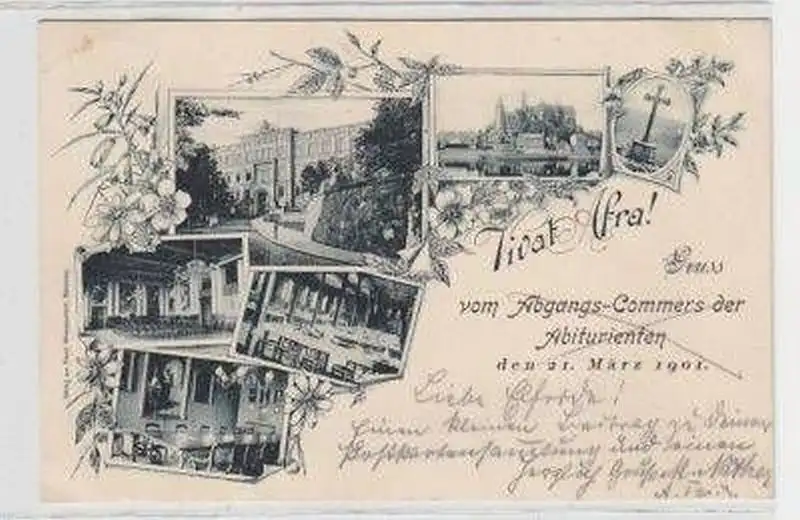 Vivat Afra!
Gruss
vom Abgangs-Commers der
Abiturienten
den 21. März 1901.
Liebe Elfriede!
Einen kleinen Beitrag zu Deiner
Postkartensammlung und einen
herzlich